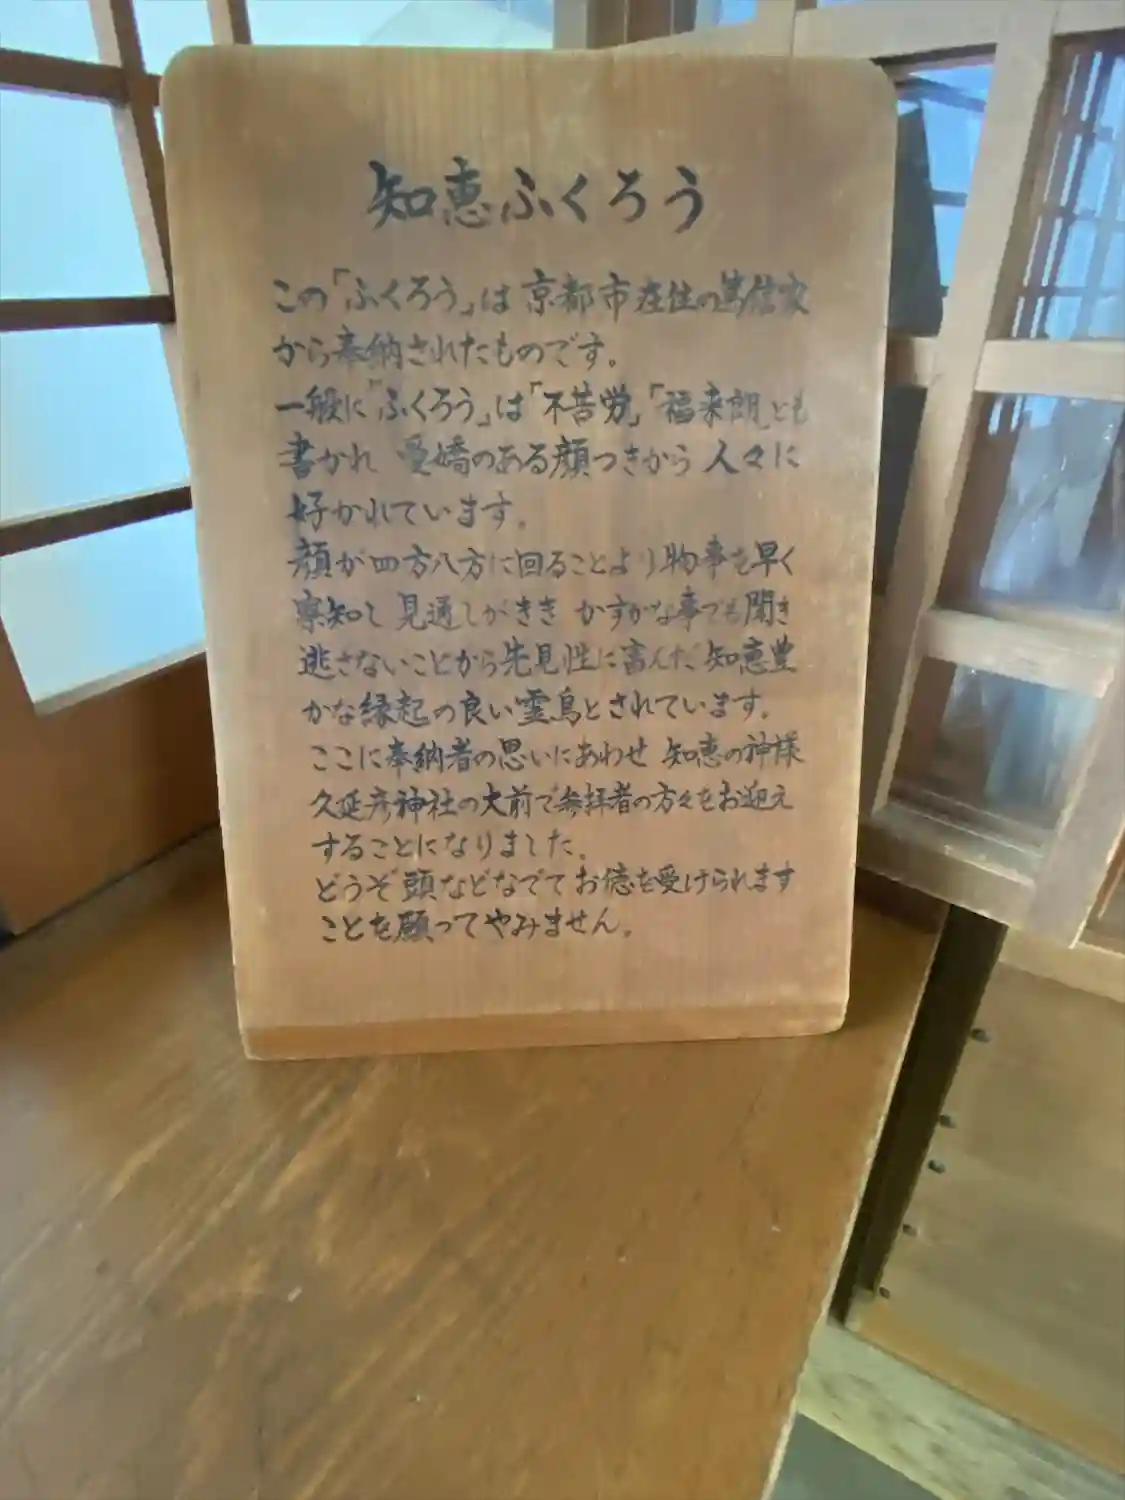 知恵ふくろう
この「ふくろう」は京都市在住の篤信家
から奉納されたものです。
一般に「ふくろう」は「不苦労」「福来朗」とも
書かれ 愛嬌のある顔つきから人々に
好かれています。
顔が四方八方に回ることより物事を早く
察知し 見通しがきき かすかな事でも聞き
逃さないことから先見性に富んだ知恵豊
かな縁起の良い霊鳥とされています。
ここに奉納者の思いにあわせ 知恵の神様
久延彦神社の大前で参拝者の方々をお迎え
することになりました。
どうぞ頭などなでてお徳を受けられます
ことを願ってやみません。